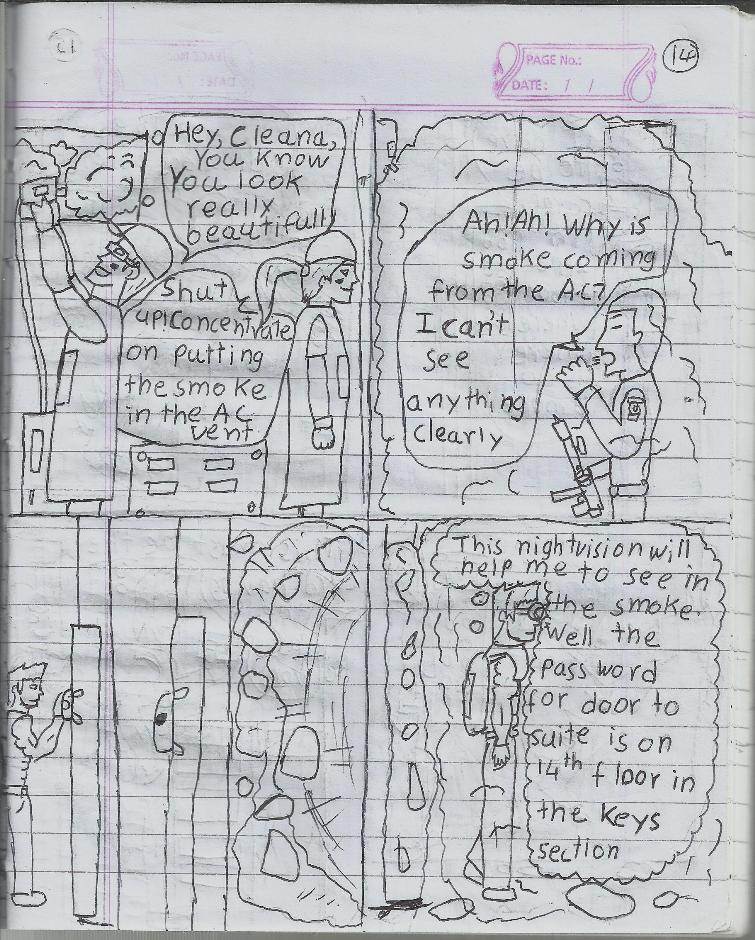 PAGE No.:
DATE: / /
14
Hey, Cleana,
You know
You look
really
beautifull
Shut
up! Concentrate
on putting
the smoke
in the AC
vent
Ah! Ah! Why is
smoke coming
from the AC?
I can't
see
anything
clearly
This nightvision will
help me to see in
the smoke.
Well the
pass word
for door to
suite is on
14th floor in
the keys
section